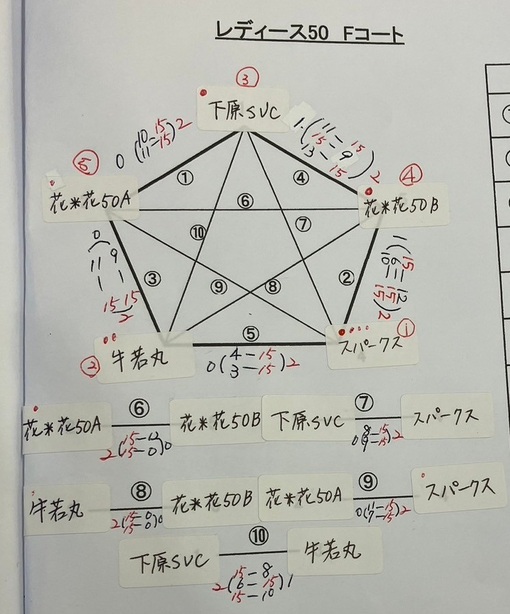 レディース50 Fコート
③
下原SVC
0 (10-15 11-15) 2
1 (11-15 15-9 13-15) 2
⑤
花*花50A
④
花*花50B
①
④
⑥
⑩
⑦
③
⑨
⑧
②
0 (11-15 9-15) 2
②
牛若丸
⑤
スパークス
①
0 (4-15 3-15) 2
花*花50A ⑥ 花*花50B
下原SVC ⑦ スパークス
牛若丸 ⑧ 花*花50B
2 (15-0 15-0) 0
花*花50A ⑨ スパークス
下原SVC ⑩ 牛若丸
2 (15-8 6-15 15-10) 1